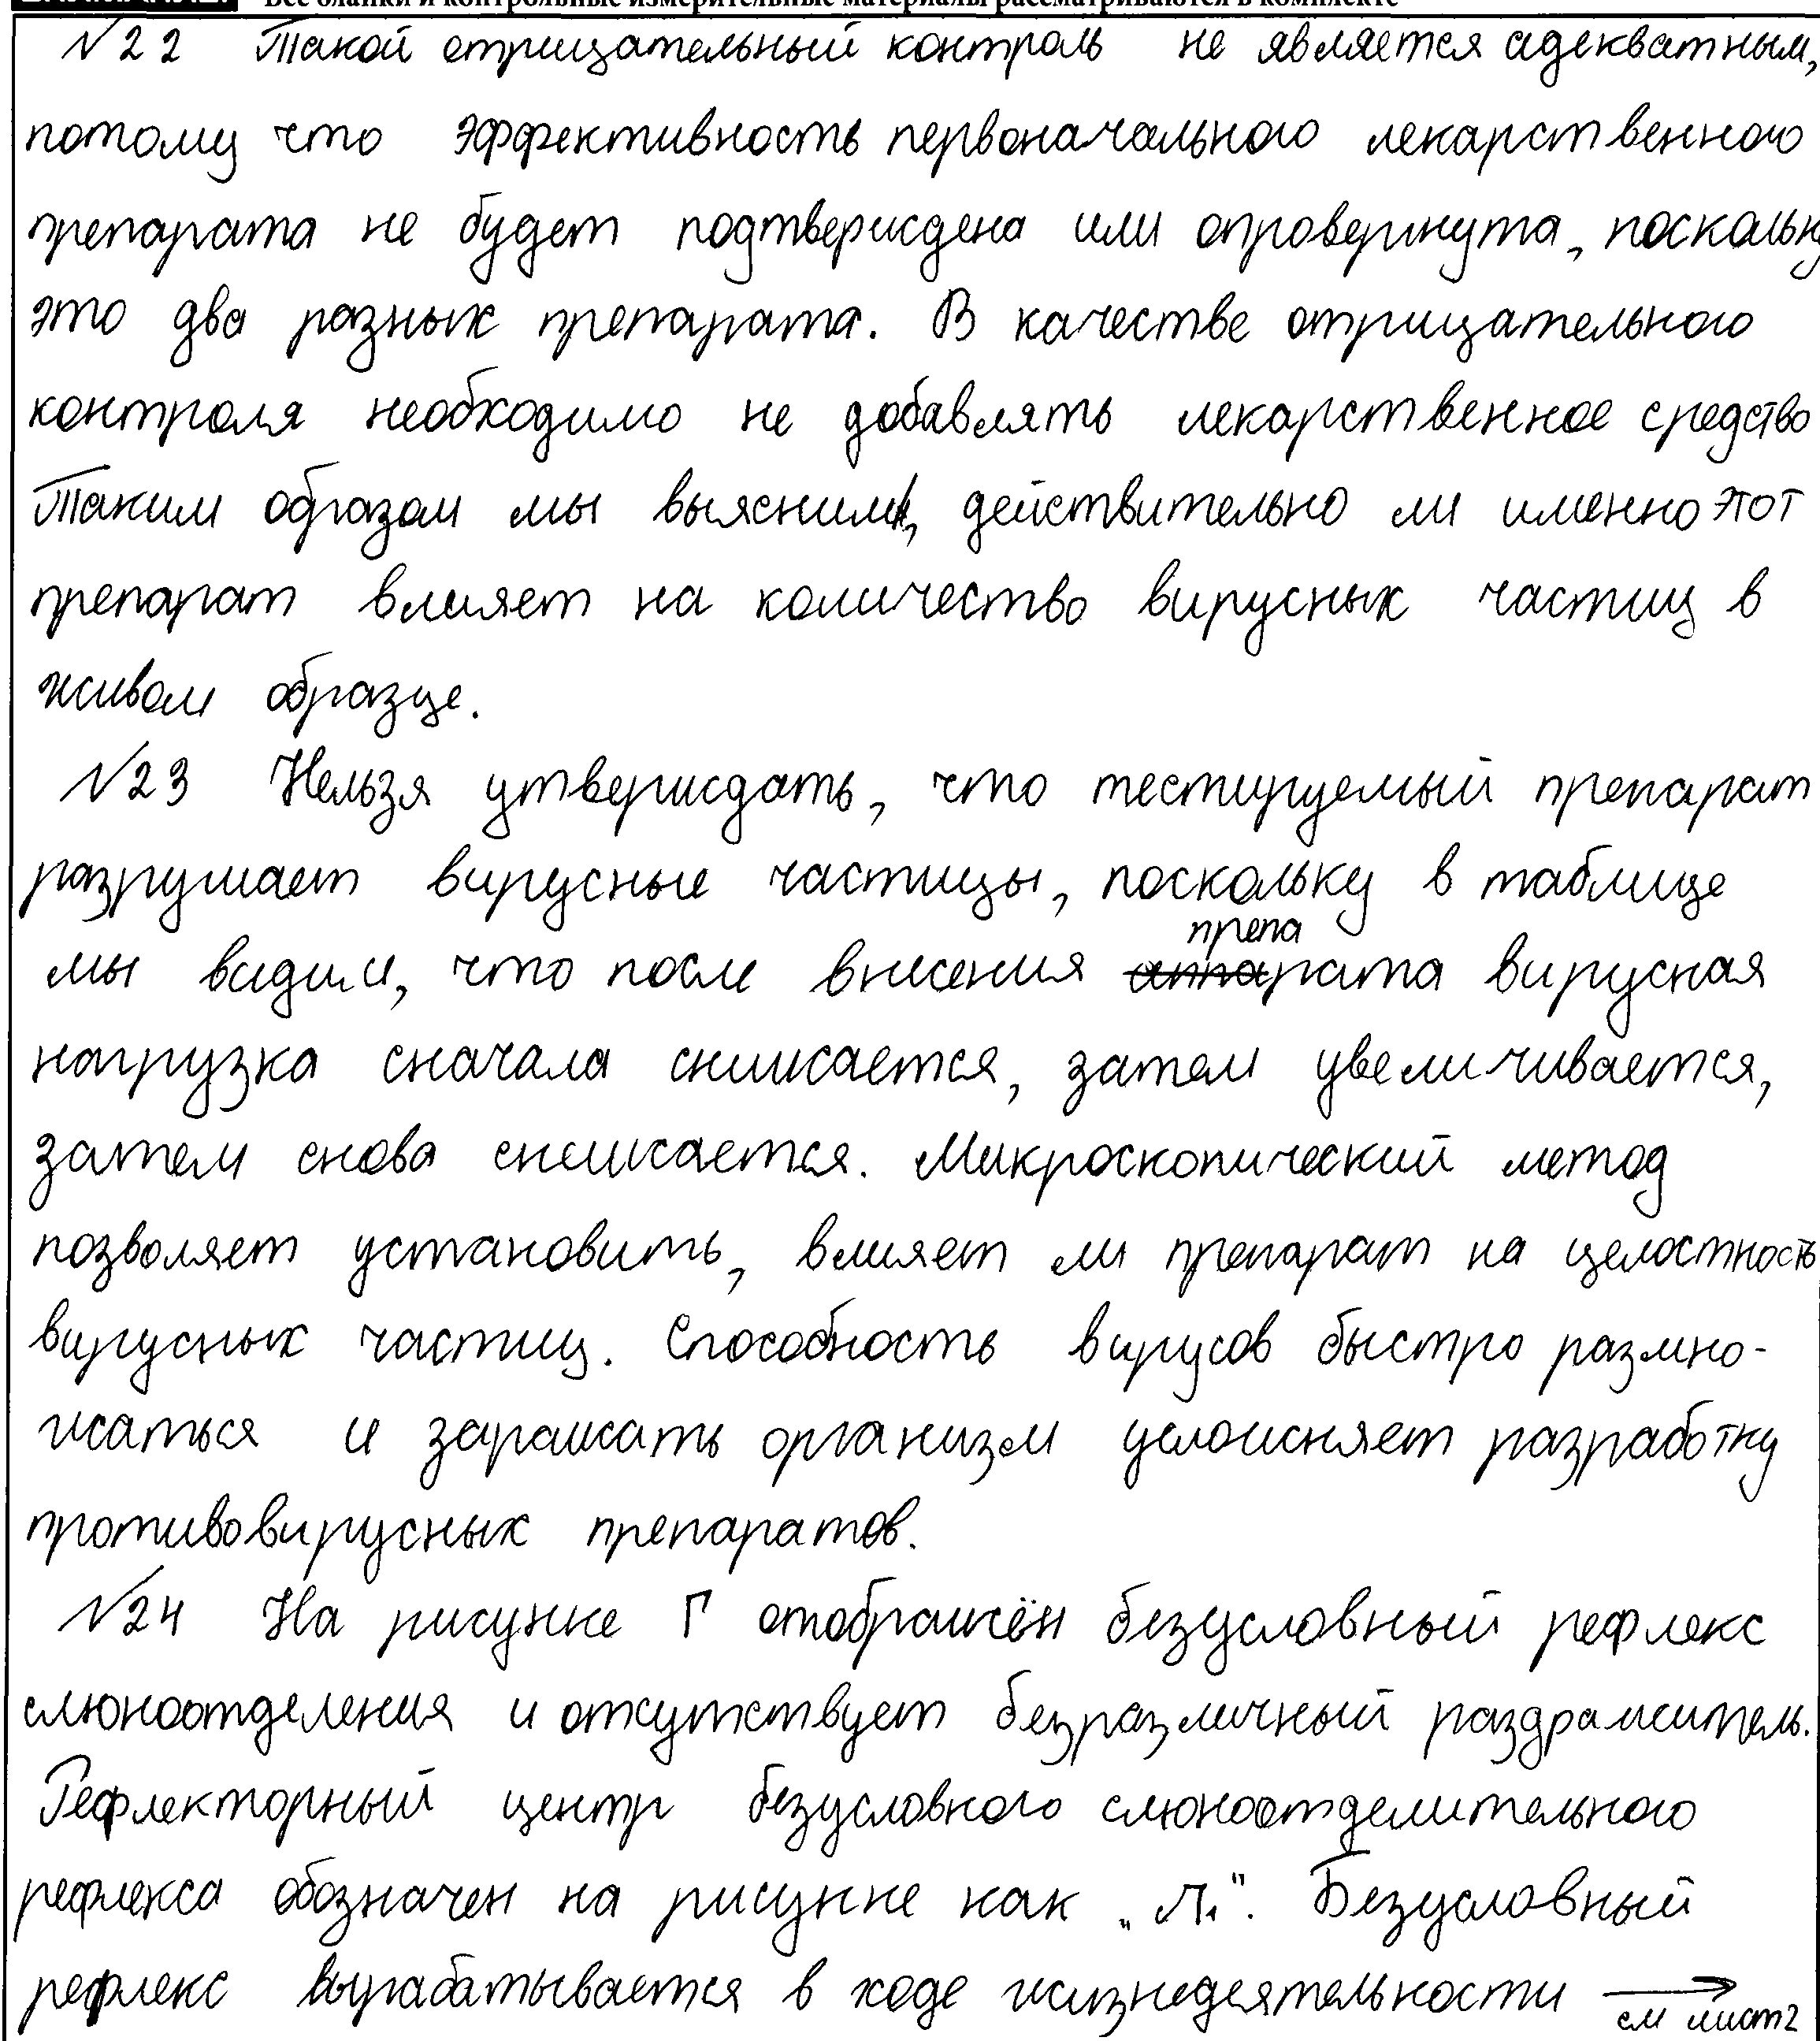 Все бланки и контрольные измерительные материалы рассматриваются в комплекте
№22 Такой отрицательный контроль не является адекватным,
потому что эффективность первоначального лекарственного
препарата не будет подтверждена или опровергнута, поскольку
это два разных препарата. В качестве отрицательного
контроля необходимо не добавлять лекарственное средство
Таким образом мы выясним, действительно ли именно этот
препарат влияет на количество вирусных частиц в
живом образце.
№23 Нельзя утверждать, что тестируемый препарат
разрушает вирусные частицы, поскольку в таблице
мы видим, что после внесения препарата вирусная
нагрузка сначала снижается, затем увеличивается,
затем снова снижается. Микроскопический метод
позволяет установить, влияет ли препарат на целостность
вирусных частиц. Способность вирусов быстро размно-
жаться и заражать организм усложняет разработку
противовирусных препаратов.
№24 На рисунке Г отображён безусловный рефлекс
слюноотделения и отсутствует безразличный раздражитель.
Рефлекторный центр безусловного слюноотделительного
рефлекса обозначен на рисунке как „Л1". Безусловный
рефлекс вырабатывается в ходе жизнедеятельности
см лист2